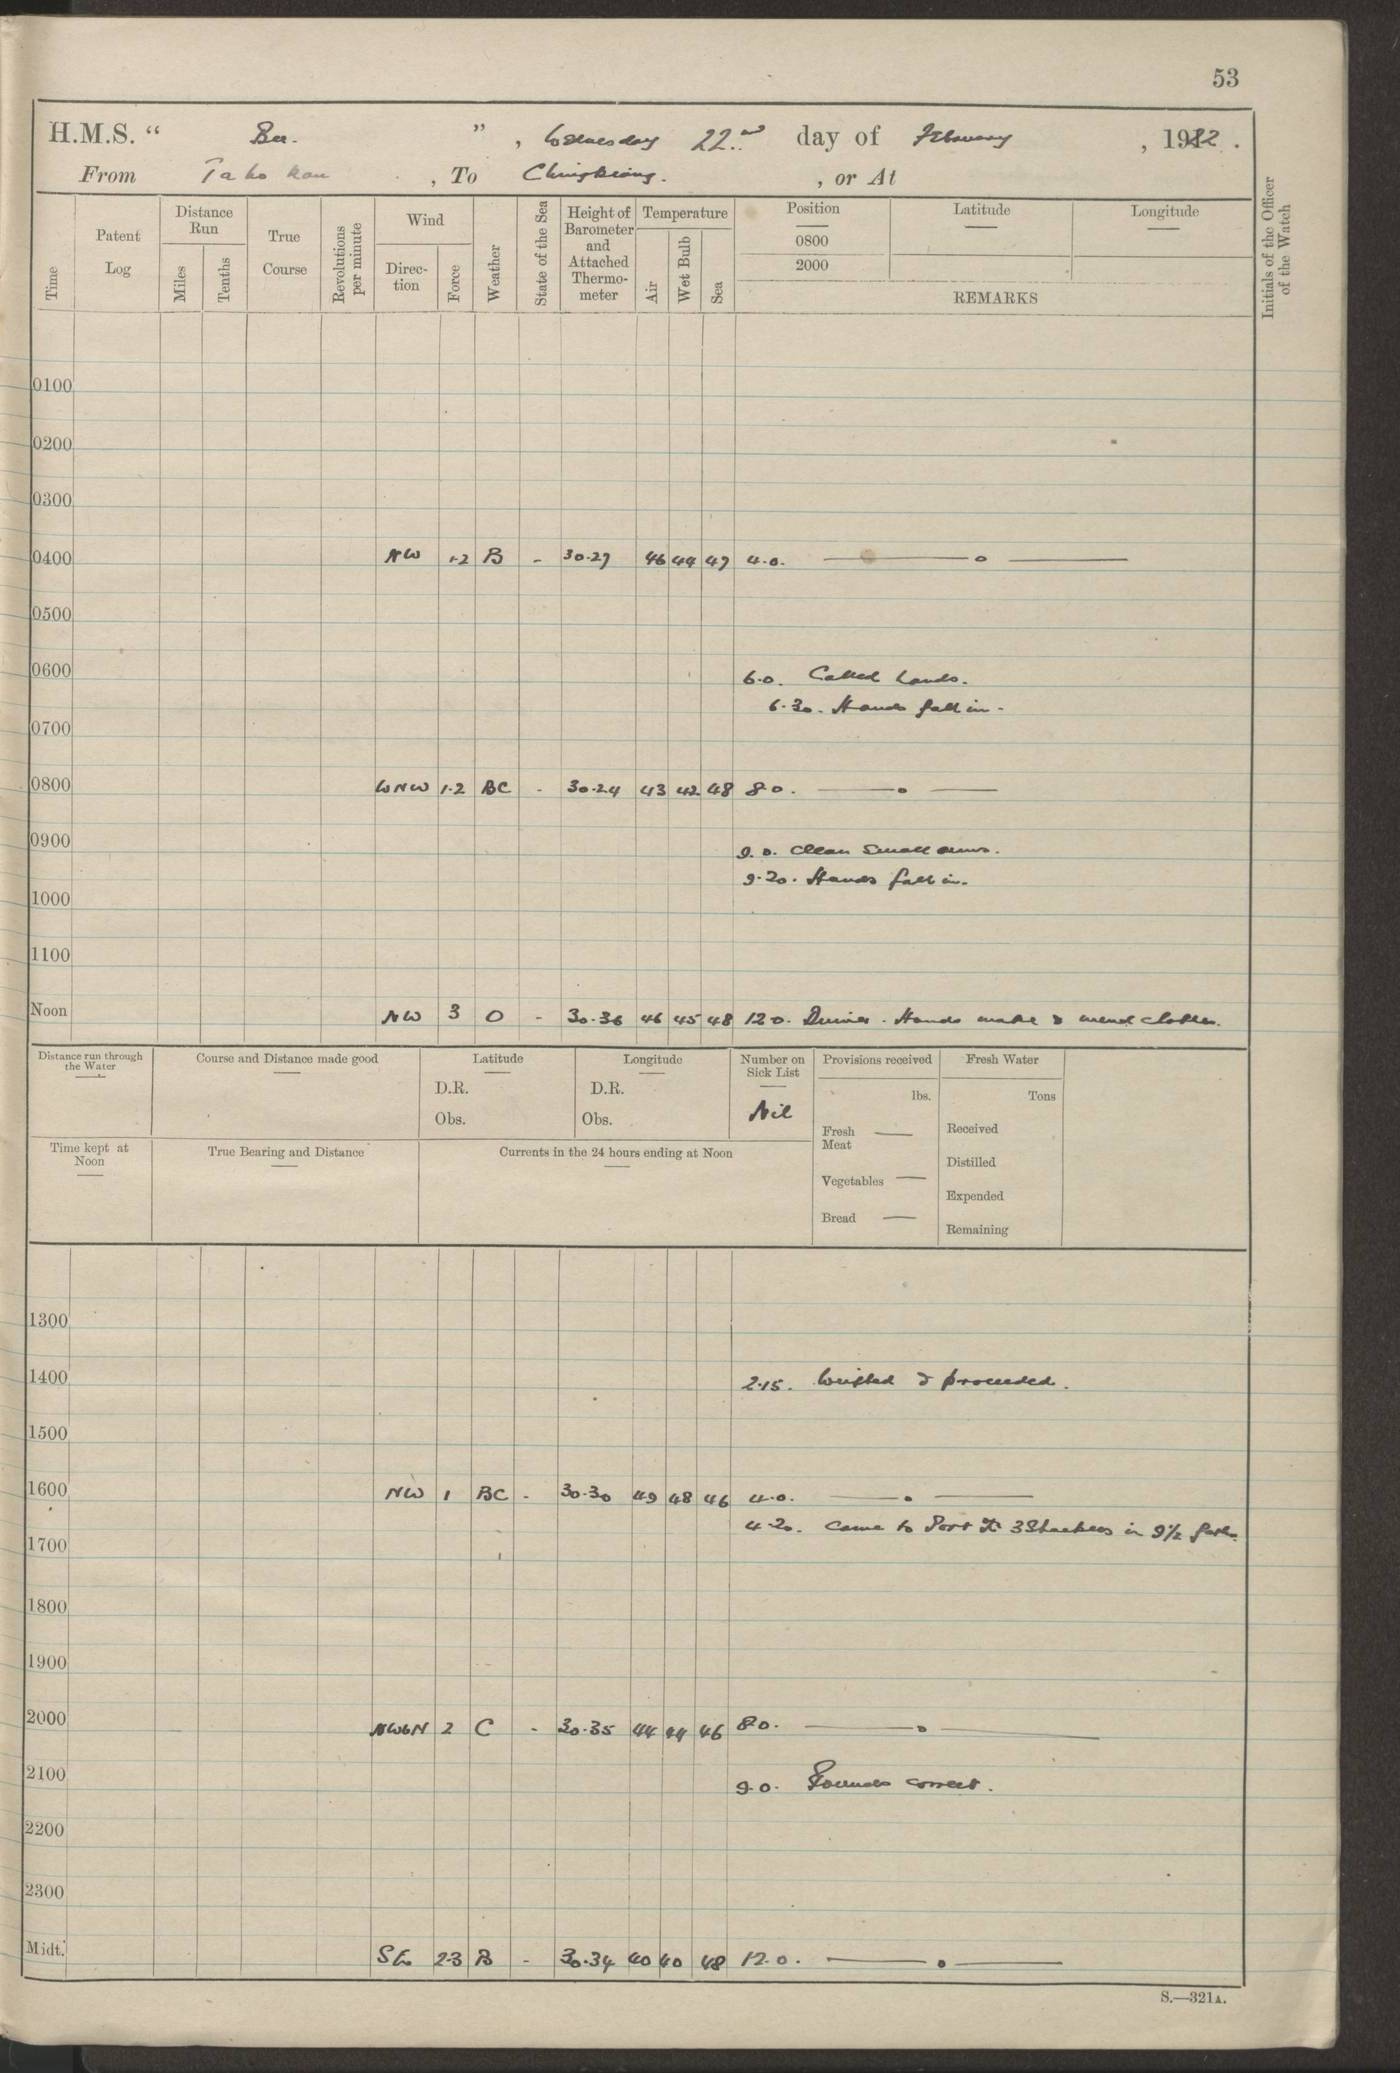 53
H.M.S. " Bee. ", Wednesday 22nd day of February, 1922.
From Ta ho kau, To Chingkiang., or At
Time
Patent Log
Distance Run
Miles
Tenths
True Course
Revolutions per minute
Wind
Direction
Force
Weather
State of the Sea
Height of Barometer and Attached Thermometer
Temperature
Air
Wet Bulb
Sea
Position
0800
2000
Latitude
Longitude
REMARKS
Initials of the Officer of the Watch
0100
0200
0300
0400 NW 1.2 B - 30.27 46 44 47 4.0.
0500
0600 6.0. Called hands.
6.30. Hands fall in.
0700
0800 WNW 1.2 BC - 30.24 43 42 48 8.0.
0900 9.0. Clean Small arms.
9.20. Hands fall in.
1000
1100
Noon NW 3 O - 30.36 46 45 48 12.0. Dinner. Hands make & mend clothes.
Distance run through the Water
Course and Distance made good
Latitude
D.R.
Obs.
Longitude
D.R.
Obs.
Number on Sick List
Nil
Provisions received
lbs.
Fresh Meat
Vegetables
Bread
Fresh Water
Tons
Received
Distilled
Expended
Remaining
Time kept at Noon
True Bearing and Distance
Currents in the 24 hours ending at Noon
1300
1400 2.15. Weighed & proceeded.
1500
1600 NW 1 BC - 30.30 49 48 46 4.0.
4.20. Came to Port 3 Shackles in 9½ fath.
1700
1800
1900
2000 NWbN 2 C - 30.35 44 44 46 8.0.
2100 9.0. Rounds correct.
2200
2300
Midt. SE 2.3 B - 30.34 40 40 48 12.0.
S.—321A.